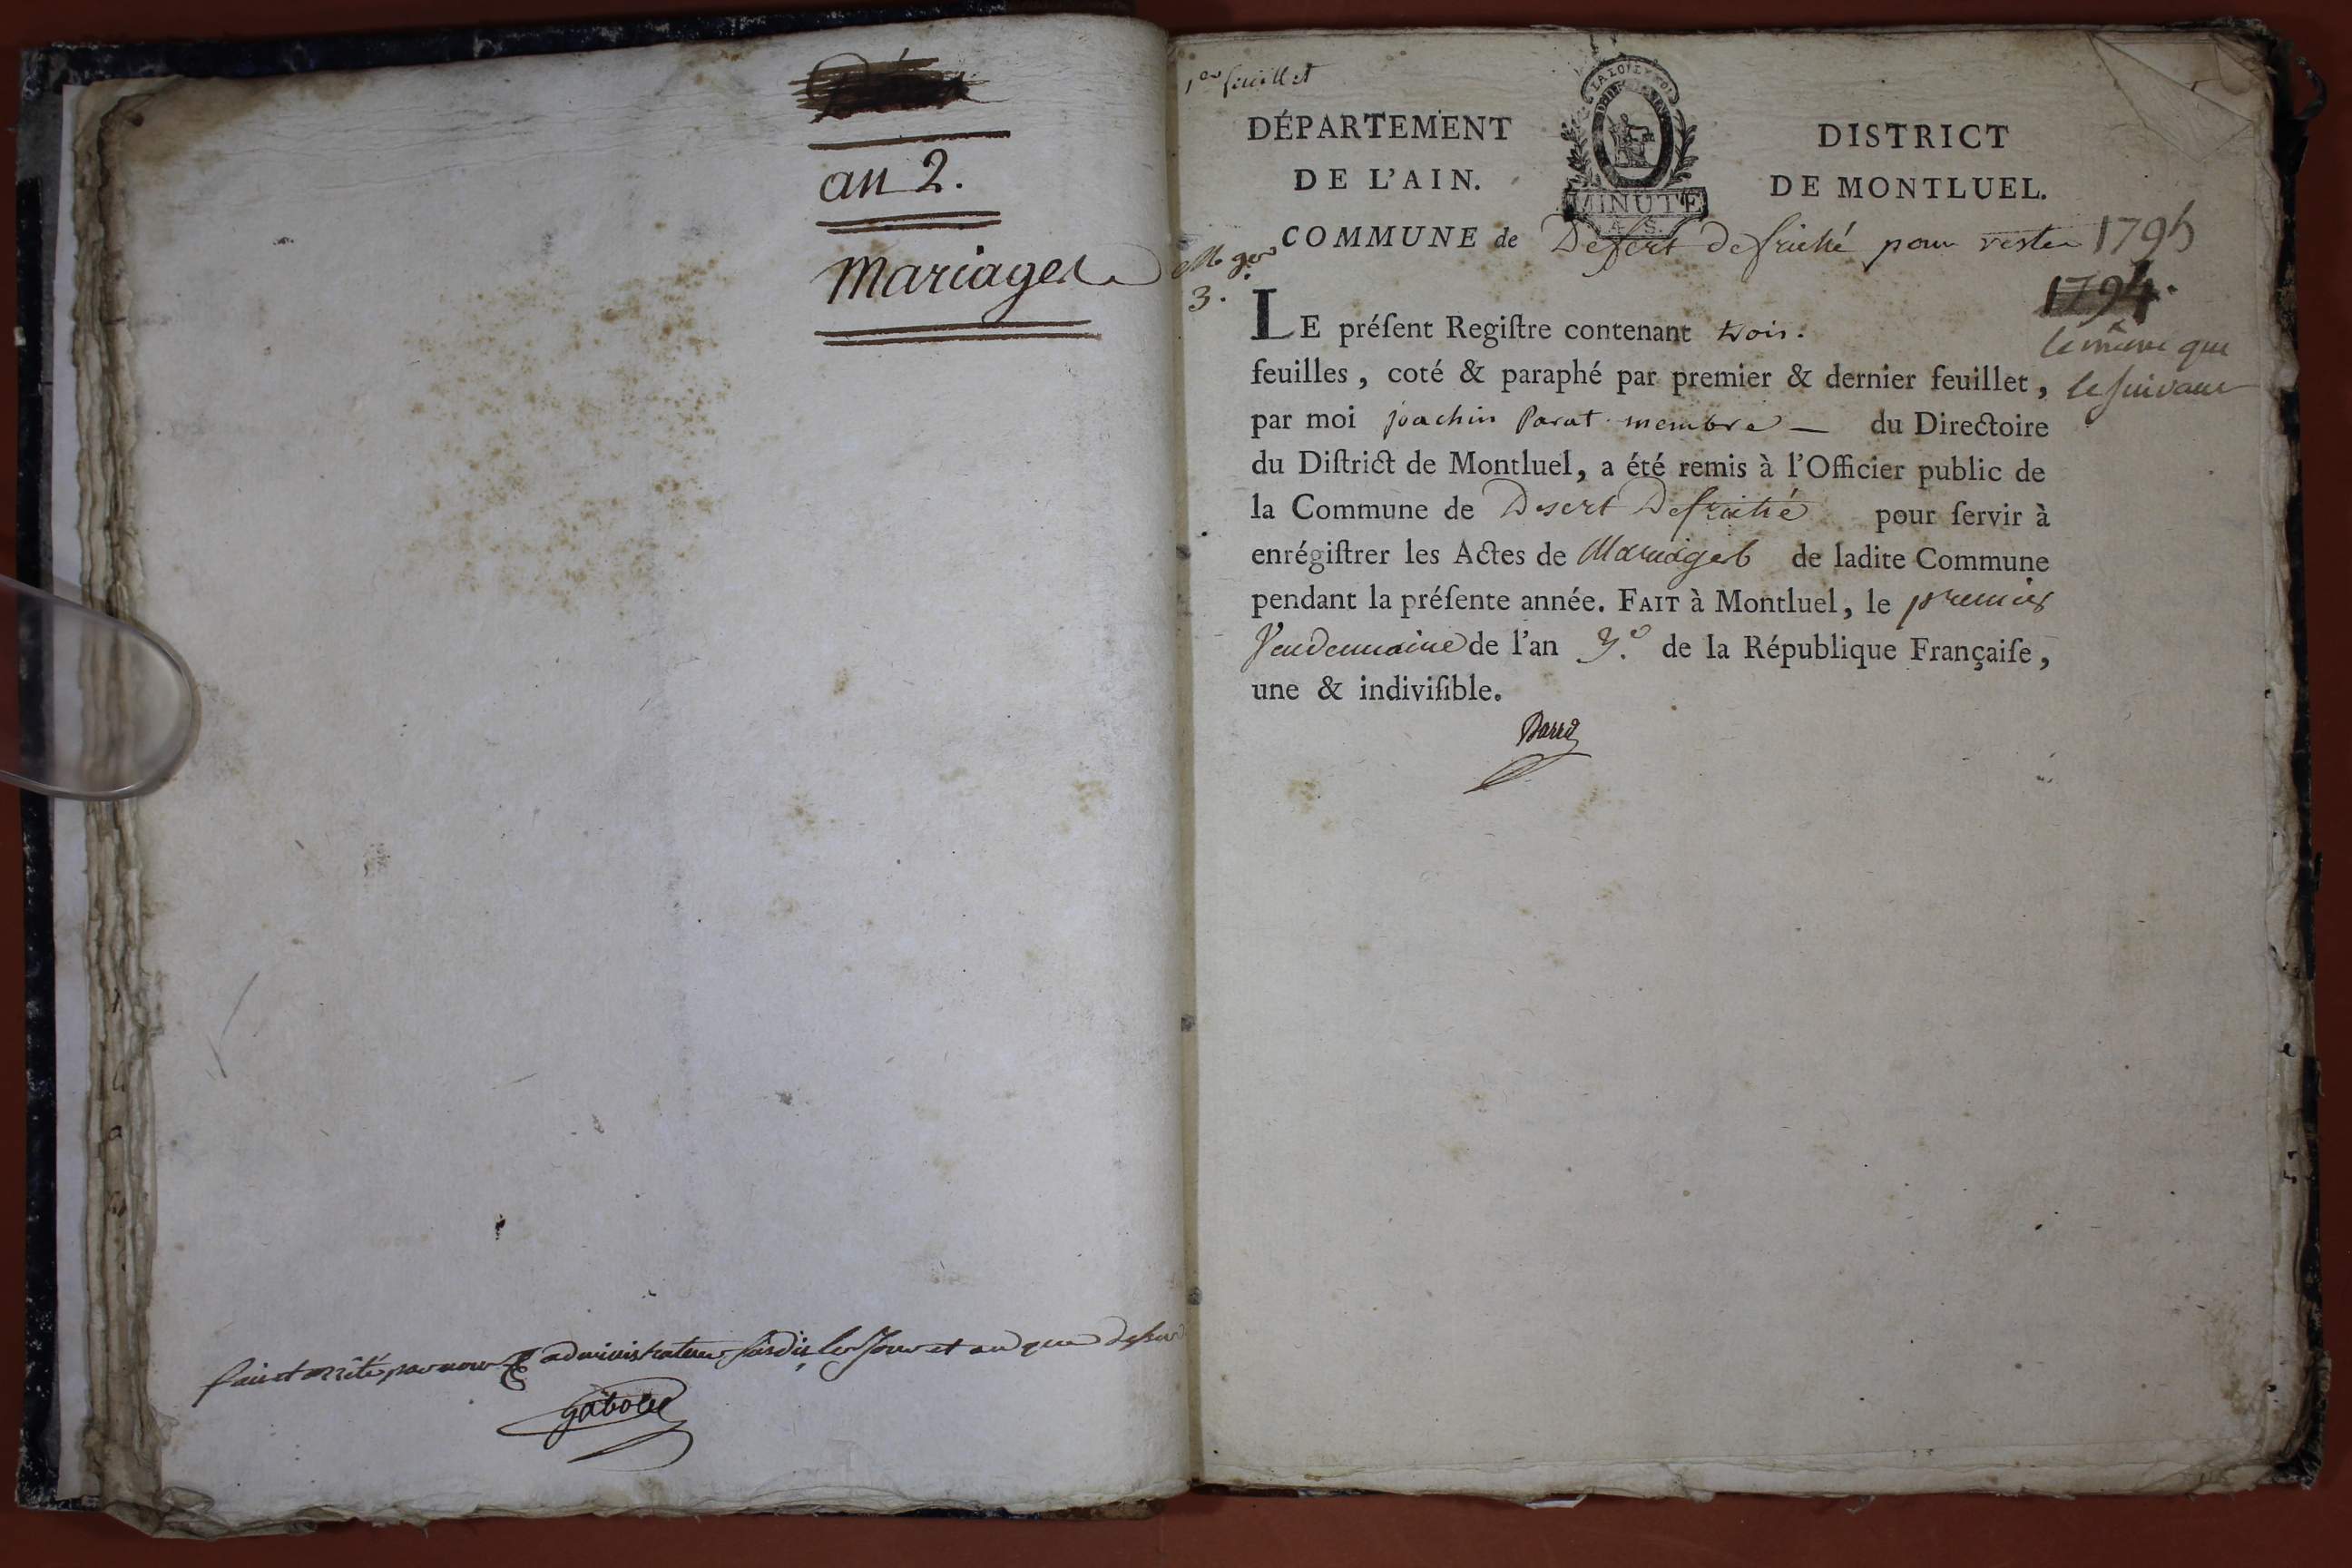 an 2.
Mariages
fait et arrêté par nous administrateur susdit les jour et an que dessus
1er feuillet
DÉPARTEMENT
DE L'AIN.
LA LOI
MINUTE
DISTRICT
DE MONTLUEL.
COMMUNE de Desert defriché pour rester 1795
1794.
le même que
le suivant
3.
LE préſent Regiſtre contenant trois.
feuilles, coté & paraphé par premier & dernier feuillet,
par moi joachin Parat membre — du Directoire
du Diſtrict de Montluel, a été remis à l'Officier public de
la Commune de Desert Defriché pour ſervir à
enrégiſtrer les Actes de Mariages de ladite Commune
pendant la préſente année. FAIT à Montluel, le premier
Vendemiaire de l'an 3.e de la République Françaiſe,
une & indiviſible.